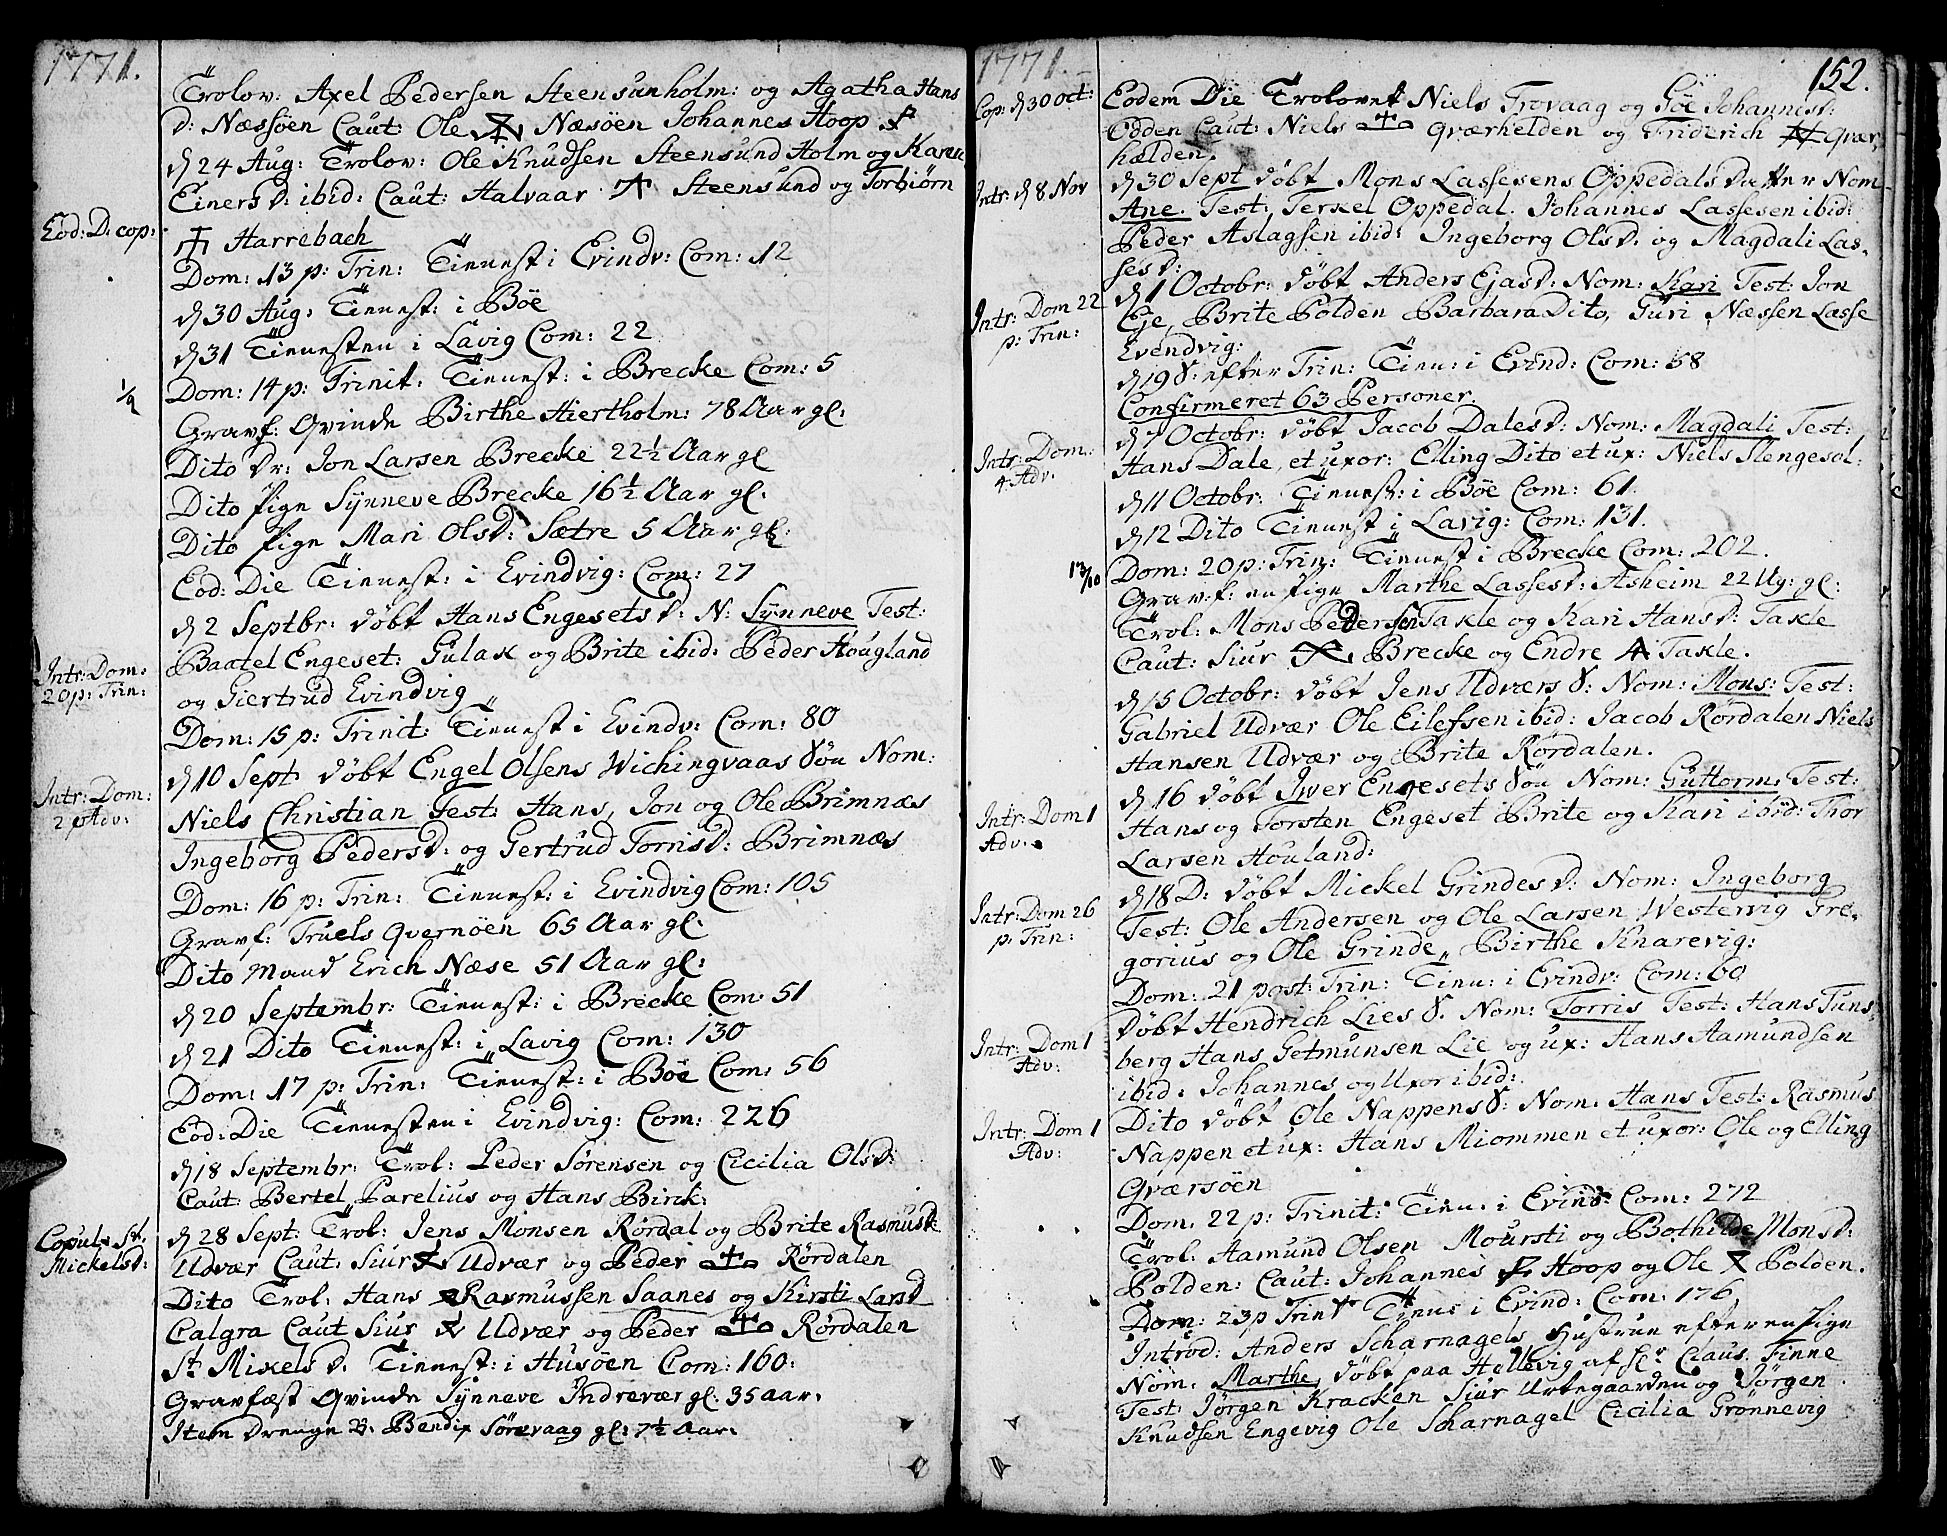 1771.
Trolov: Axel Pedersen Steensunholm: og Agatha Hans
D: Næssöen Caut: Ole Næsöen Johannes Hoop
d 24 Aug: Trolov: Ole Knudsen Steensund Holm og Karen
Einersd: ibid: Caut: Halvaar Steensund og Torbiörn
Eod: D: cop:
Harrebach
Dom: 13 p: Trin: Tienest i Evindv: Com: 12
d 30 Aug: Tienest: i Böe
d 31 Tienesten i Lavig Com: 22
Dom: 14 p: Trinit: Tienest: i Brecke Com: 5
1/9
Gravf: Qvinde Birthe Hiertholm: 78 Aar gl:
Dito Dr: Jon Larsen Brecke 22½ Aar gl
Dito Pige Synneve Brecke 16½ Aar gl.
Dito Pige Mari Olsd: Sætre 5 Aar gl:
Eod: Die Tienest: i Evindvig: Com: 27
d 2 Septbr: döbt Hans Engesets D: N: Synneve Test:
Baatel Engeset: Gulak og Brite ibid: Peder Hougland
Intr: Dom:
20 p: Trin:
og Giertrud Evindvig
Dom: 15 p: Trinit: Tienest i Evindv: Com: 80
d 10 Sept döbt Engel Olsens Wichingvaas Sön Nom:
Intr: Dom:
2 p Adv:
Niels Christian Test: Hans, Jon og Ole Brimnæs
Ingeborg Pedersd: og Gertrud Tornisd: Brimnæs
Dom: 16 p: Trin: Tienest: i Evindvig Com: 105
Gravf: Truels Qvernöen 65 Aar gl:
Dito Mand Erich Næse 51 Aar gl:
d 20 Septembr: Tienest: i Brecke Com: 51
d 21 Dito Tienest: i Lavig Com: 130
Dom: 17 p: Trin: Tienest: i Böe Com: 56
Eod: Die Tienesten i Evindvig: Com: 226
d 18 Septembr: Trol: Peder Sörensen og Cicilia Olsd:
Caut: Bertel Parelius og Hans Birck:
Copul: St.
Mickelsd:
d 28 Sept: Trol: Jens Monsen Rördal og Brite Rasmusd
Udvær Caut: Siur Udvær og Peder Rördalen
Dito Trol: Hans Rasmussen Saanes og Kirsti Larsd
Calgra Caut Siur Udvær og Peder Rördalen
St Mixelsd. Tienest: i Husöen Com: 160:
Gravfæst Qvinde Synneve Indrevær gl: 35 aar.
Item Drenge B: Bendix Sörevaag gl: 7½ Aar:
1771.
152.
Cop: d 30 Oct:
Eodem Die Trolovet Niels Trovaag og Göe Johannesd:
Odden Caut: Niels Qværhelden og Friderich Qvær,
hælden.
Intr: d 8 Nov
d 30 Sept döbt Mons Lassesens Oppedals datter Nom
Ane. Test: Terkel Oppedal. Johannes Lassesen ibid:
Peder Aslagsen ibid: Ingeborg Olsd: og Magdali Las-
sesd:
Intr: Dom 22
p: Trin:
d 1 Octobr: döbt Anders Ejas d: Nom: Kari Test: Jon
Eje, Brite Polden Barbara Dito, Turi Næssen Lasse
Evendvig:
d 19 S: efter Trin: Tien: i Evind: Com: 58
Confirmeret 63 Personer.
Intr: Dom.
4 Adv.
d 7 Octobr: döbt Jacob Dales d: Nom: Magdali Test:
Hans Dale, et uxor: Elling Dito et ux: Niels Slengesol:
d 11 Octobr: Tienest: i Böe Com: 61.
d 12 Dito Tienest i Lavig: Com: 131.
13/10
Dom: 20 p: Trin: Tienest i Brecke Com: 202.
Grav:f: en Pige Marthe Lassesd: Asheim 22 Ug: gl:
Trol: Mons Pedersen Takle og Kari Hansd: Takle
Caut: Siur Brecke og Endre Takle.
d 15 Octobr: döbt Jens Udværs S: Nom: Mons: Test:
Gabriel Udvær Ole Eilefsen ibid: Jacob Rördalen Niels
Hansen Udvær og Brite Rördalen.
Intr: Dom 1
Adv.
d 16 döbt Iver Engesets Sön Nom: Guttorm. Test:
Hans og Torsten Engeset Brite og Kari ibid: Thor
Larsen Houland:
Intr: Dom 26
p: Trin:
d 18 D: döbt Mickel Grindes d: Nom: Ingeborg
Test: Ole Andersen og Ole Larsen Westervig Gre,
gorius og Ole Grinde, Birthe Knarevig:
Dom: 21 post: Trin: Tien: i Evindv: Com: 60
Intr: Dom 1
Adv:
Döbt Hendrich Lies S. Nom: Torris Test: Hans Tuns
berg Hans Getmunsen Lie og ux: Hans Aamundsen
ibid: Johannes og Uxor ibid:
Intr: Dom 1
Adv:
Dito döbt Ole Nappens S: Nom: Hans Test: Rasmus
Nappen et ux: Hans Miommen et uxor: Ole og Elling
Qværsöen
Dom. 22 p: Trinit: Tien: i Evind: Com: 272
Trol: Aamund Olsen Moursti og Bothilde Monsd:
Polden: Caut: Johannes Hoop og Ole Polden.
Dom: 23 p Trinit Tienes i Evind: Com: 176
Introd: Anders Scharnagels Hustrue efter en Pige
Nom: Marthe, döbt paa Hellevig af Hr Claus Finne
Test: Jörgen Kracken Siur Urtegaarden og Jörgen
Knudsen Engevig Ole Scharnagel Cicilia Grönnevig